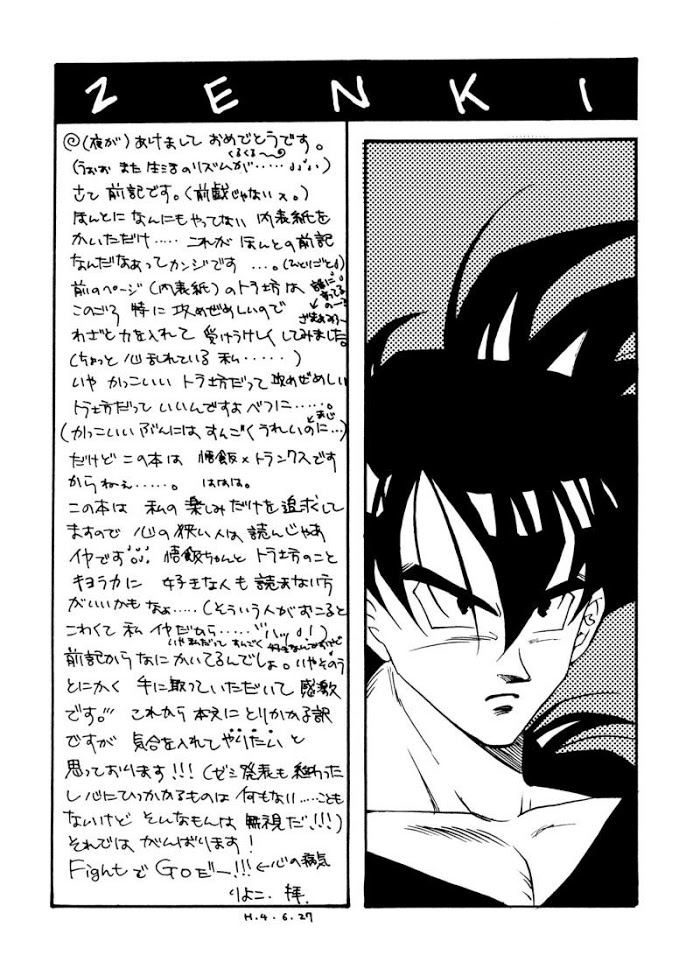 ZENKI
@(夜が)あけまして おめでとうです。
くるくる〜
(うおお また 生活のリズムが‥‥‥)
さて 前記です。(前戯じゃないっ。)
ほんとに なんにもやってない 内表紙を
かいただけ‥‥‥ これが ほんとの前記
なんだなあってカンジです …。(ひとりごと)
前のページ(内表紙)のトラ坊は
このごろ 特に 攻めぜめしいので
わざと力を入れて 受けうけしくしてみました。
(ちょっと 心乱れている 私‥‥‥)
いや かっこいい トラ坊だって 攻めぜめしい
トラ坊だって いいんですよ べつに‥‥‥。
(かっこいい ぶんには すんごく うれしいのに…)
だけど この本は 悟飯×トランクスです
からねぇ‥‥‥。 ははは。
この本は 私の 楽しみだけを追求して
ますので 心の狭い人は 読んじゃあ
イヤです 悟飯ちゃんと トラ坊のこと
キヨラカに 好きな人も 読まない方
がいいかもなぁ‥‥‥(そういう人がおこると
こわくて 私 イヤだから‥‥‥ ハッ!)
いや私だって すんごく 好きなんですけど
前記からなにかいてるんでしょ。いやそのう
とにかく 手に取っていただいて 感激
です。 これから 本文に とりかかる訳
ですが 気合を入れて やりたい と
思っております!!! (ゼミ発表も終わった
し心にひっかかるものは 何もない‥‥‥こども
ないけど そんなもんは 無視だ!!!)
それでは がんばります!
Fightで Goだー!!! ←心の病気
りよこ. 拝.
H.4.6.27